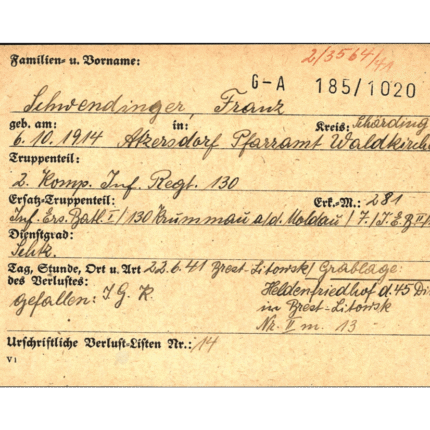 Familien- u. Vorname: 2/3564/41
G-A 185/1020
Schwendinger, Franz
geb. am: in: Kreis: Schärding
6.10.1914 Atzersdorf Pfarramt Waldkirche
Truppenteil:
2. Komp. Inf. Regt. 130
Ersatz-Truppenteil: Erk.-M.: 281
Inf. Ers. Batl. I/130 Krummau a/d. Moldau / 7./I.E.B II/1
Dienstgrad:
Schtz.
Tag, Stunde, Ort u. Art 22.6.41 Brest-Litowsk/ Grablage:
des Verlustes: Heldenfriedhof d. 45 Di
gefallen: I.G.K. in Brest-Litowsk
Nr. II m. 13
Urschriftliche Verlust-Listen Nr.: 14
V 1